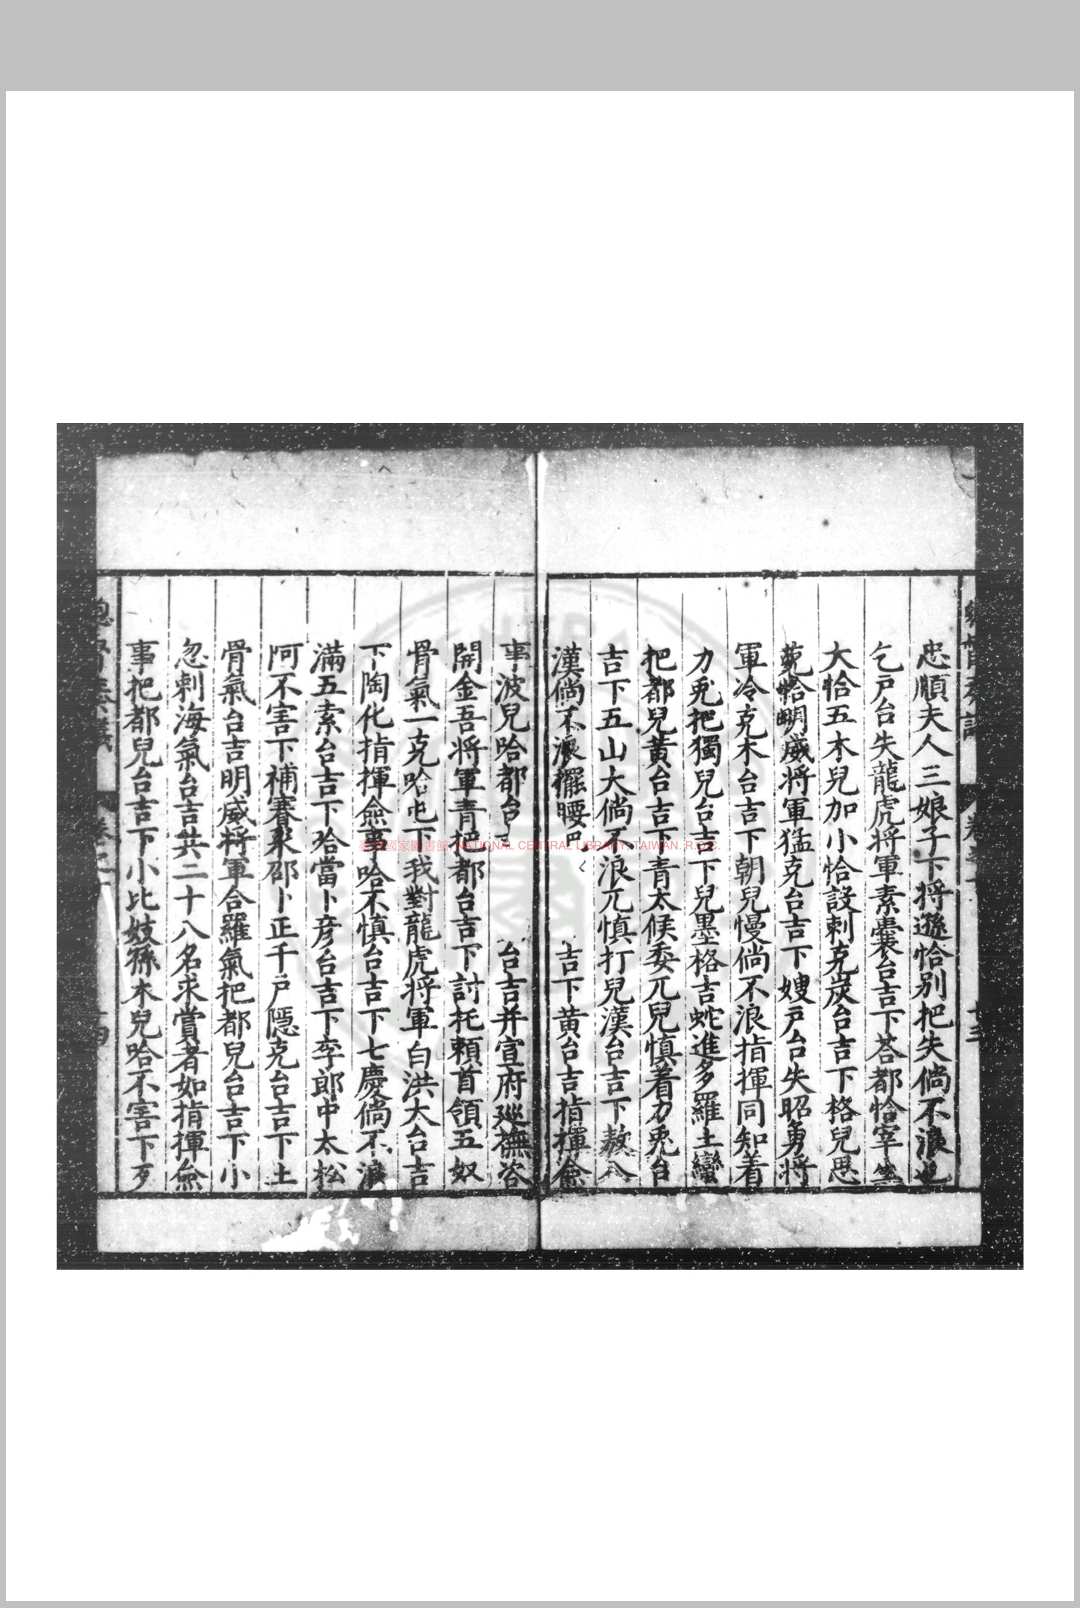 忠順夫人三娘子下捋遜恰别把失倘不浪
乞户台失龍虎將軍素囊台吉下荅都恰宰
大恰五木兒加小恰設剌克炭台吉下格兒思
恰明威將軍猛克台吉下嫂户台失昭勇將
軍冷克木台吉下朝兒慢倘不浪指揮同知着
力兎把獨兒台吉下兒墨格吉蛇進多羅土蠻
把都兒黄台吉下青太候委兀兒慎着力兎台
吉下五山大倘不浪兀慎打兒漢台吉下
漢倘不浪擺腰把 吉下黄台吉指揮僉
事波兒哈都台 台吉并宣府廵撫咨
開金吾將軍青把都台吉下討托賴首領五奴
骨氣一克哈屯下我對龍虎將軍白洪大台吉
下陶化指揮僉事哈不慎台吉下七慶倘不浪
滿五索台吉下哈當卜彦台吉下李郎中太松
阿不害下補賽來邵卜正千户隱克台吉下土
骨氣台吉明威將軍合羅氣把都兒台吉下小
忽剌海氣台吉共二十八名求賞者如指揮僉
事把都兒台吉下小比妓孫木兒哈不害下歹
卷之十
廿四
NATIONAL CENTRAL LIBRARY, TAIWAN, R.O.C.